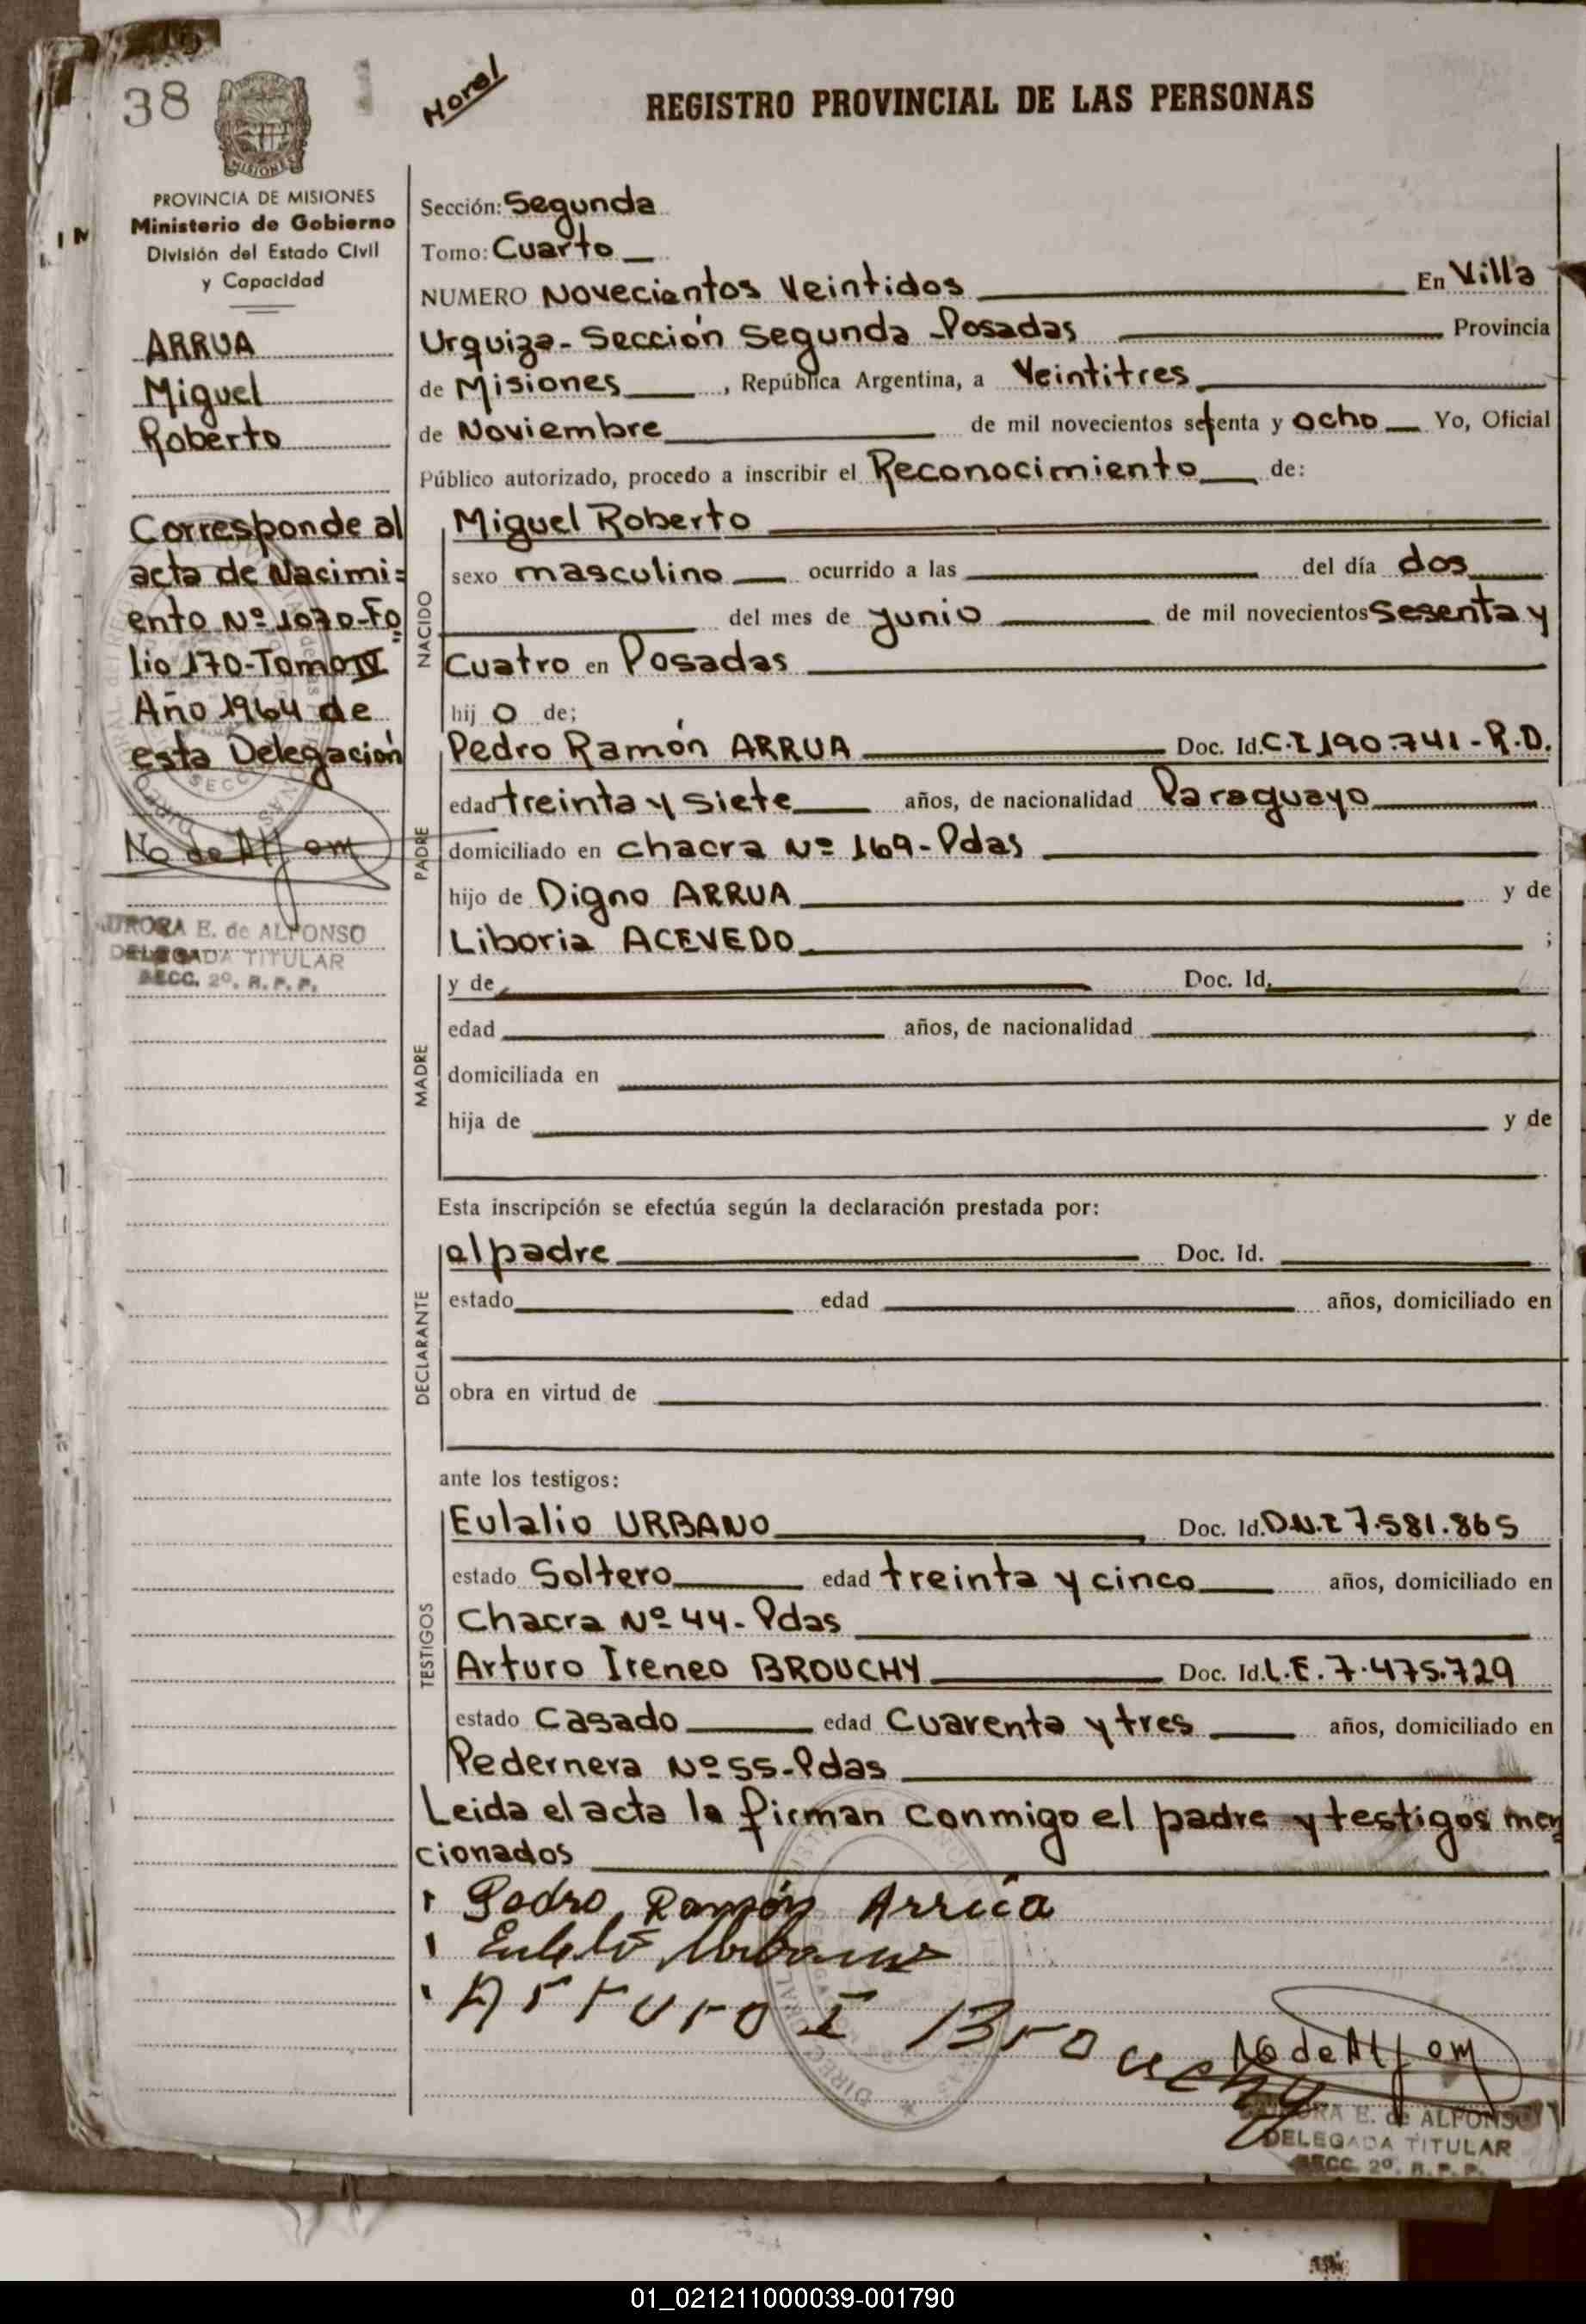 38
Morel
REGISTRO PROVINCIAL DE LAS PERSONAS
MISIONES
PROVINCIA DE MISIONES
Ministerio de Gobierno
División del Estado Civil
y Capacidad
ARRUA
Miguel
Roberto
Corresponde al
acta de Nacimi=
ento Nº 1070-Fo
lio 170-Tomo IV
Año 1964 de
esta Delegación
AURORA E. de ALFONSO
DELEGADA TITULAR
SECC. 2º. R. P. P.
Sección: Segunda
Tomo: Cuarto
NUMERO Novecientos Veintidos En Villa
Urquiza - Sección Segunda - Posadas Provincia
de Misiones, República Argentina, a Veintitres
de Noviembre de mil novecientos setenta y ocho Yo, Oficial
Público autorizado, procedo a inscribir el Reconocimiento de:
NACIDO
Miguel Roberto
sexo masculino ocurrido a las del día dos
del mes de junio de mil novecientos Sesenta y
Cuatro en Posadas
hij o de;
PADRE
Pedro Ramón ARRUA Doc. Id. C.I 190.741 - R.D.
edad treinta y siete años, de nacionalidad Paraguayo
domiciliado en chacra Nº 169 - Pdas
hijo de Digno ARRUA y de
Liboria ACEVEDO ;
MADRE
y de Doc. Id.
edad años, de nacionalidad
domiciliada en
hija de y de
Esta inscripción se efectúa según la declaración prestada por:
DECLARANTE
el padre Doc. Id.
estado edad años, domiciliado en
obra en virtud de
ante los testigos:
TESTIGOS
Eulalio URBANO Doc. Id. D.N.I 7.581.865
estado Soltero edad treinta y cinco años, domiciliado en
Chacra Nº 44 - Pdas
Arturo Ireneo BROUCHY Doc. Id. L.E. 7.475.729
estado Casado edad Cuarenta y tres años, domiciliado en
Pedernera Nº 55 - Pdas
Leida el acta la firman conmigo el padre y testigos men
cionados
Pedro Ramón Arrúa
Eulalio Urbano
Arturo I Brouchy
AURORA E. de ALFONSO
DELEGADA TITULAR
SECC. 2º. R. P. P.
01_021211000039-001790